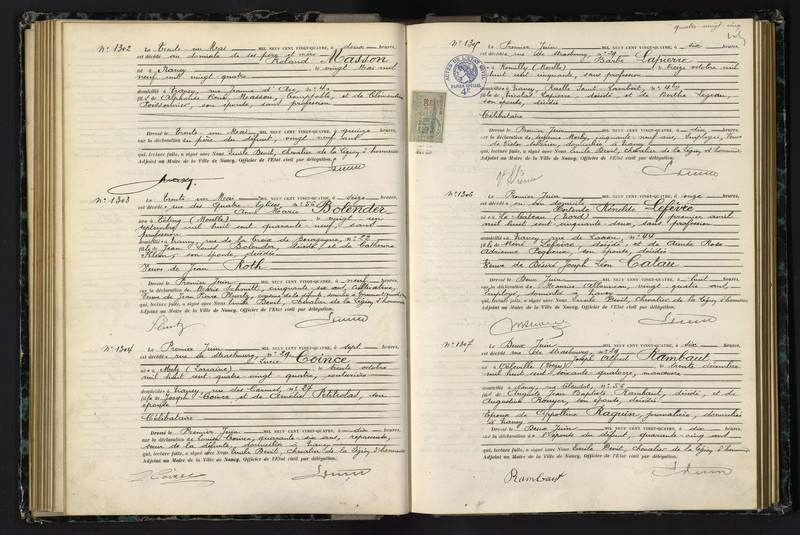 N° 1302
Le Trente un Mai MIL NEUF CENT VINGT-QUATRE, à deux heures,
est décédé au domicile de ses père et mère Roland Masson
né à Nancy le vingt Mai mil
neuf cent vingt quatre
domicilié à Nancy, rue Jeanne d'Arc, n° 40
fils de Alphonse René Masson, comptable, et de Clémentine
son épouse, sans profession
Dressé le Trente un Mai MIL NEUF CENT VINGT-QUATRE, à quinze heures,
sur la déclaration du père du défunt, vingt neuf ans
qui, lecture faite, a signé avec Nous Emile Devit, Chevalier de la Légion d'honneur
Adjoint au Maire de la Ville de Nancy, Officier de l'Etat civil par délégation.
N° 1303
Le Trente un Mai MIL NEUF CENT VINGT-QUATRE, à seize heures,
est décédée rue des Quatre Eglises n° 56
Anne Marie Bolender
née à Etting (Moselle) le vingt un
septembre mil huit cent quarante neuf, sans
profession
domiciliée à Nancy, rue de la Croix de Bourgogne, n° 22
fille de Jean Louis Bolender, décédé et de Catherine
son épouse, décédée
Veuve de Jean Roth
Dressé le Premier Juin MIL NEUF CENT VINGT-QUATRE, à neuf heures,
sur la déclaration de Marie Schmitt, cinquante six ans, cultivatrice,
Veuve de Jean Pierre
qui, lecture faite, a signé avec Nous Emile Devit, Chevalier de la Légion d'honneur
Adjoint au Maire de la Ville de Nancy, Officier de l'Etat civil par délégation.
N° 1304
Le Premier Juin MIL NEUF CENT VINGT-QUATRE, à sept heures,
est décédée rue de Strasbourg, n° 29
Lucie Coince
née à (Lorraine) le trente octobre
mil huit cent quatre vingt quatre, couturière
domiciliée à Nancy, rue des Carmes, n° 27
fille de Joseph Coince et de Amélie Petitcolas, son
épouse
Célibataire
Dressé le Premier Juin MIL NEUF CENT VINGT-QUATRE, à dix heures,
sur la déclaration de Louise Coince, quarante six ans, repasseuse,
sœur de la défunte, domiciliée à Nancy
qui, lecture faite, a signé avec Nous Emile Devit, Chevalier de la Légion d'honneur
Adjoint au Maire de la Ville de Nancy, Officier de l'Etat civil par délégation.
Coince
quatre vingt cinq
N° 1305
Le Premier Juin MIL NEUF CENT VINGT-QUATRE, à six heures,
est décédée rue de Strasbourg, n° 29
Barbe Lapierre
née à Rouilly (Moselle) le treize octobre mil
huit cent cinquante, sans profession
domiciliée à Nancy, Ruelle Saint Lambert, n° 40
fille de Nicolas Lapierre, décédé et de Berthe Legeau,
son épouse, décédée
Célibataire
Dressé le Premier Juin MIL NEUF CENT VINGT-QUATRE, à dix heures,
sur la déclaration de cinquante neuf ans, employée, Veuve
de Victor domiciliée à Nancy
qui, lecture faite, a signé avec Nous Emile Devit, Chevalier de la Légion d'honneur
Adjoint au Maire de la Ville de Nancy, Officier de l'Etat civil par délégation.
N° 1306
Le Premier Juin MIL NEUF CENT VINGT-QUATRE, à onze heures,
est décédée en son domicile
Hortense Lefèvre
née à Le Cateau (Nord) le premier avril
mil huit cent cinquante deux, sans profession
domiciliée à Nancy, rue de Laxou, n° 44
fille de René Lefèvre, décédé et de Aimée Rose
Adrienne son épouse, décédée
Veuve de Désiré Joseph Léon Catau
Dressé le Deux Juin MIL NEUF CENT VINGT-QUATRE, à huit heures,
sur la déclaration de Maurice vingt quatre ans,
employé, domicilié à Nancy
qui, lecture faite, a signé avec Nous Emile Devit, Chevalier de la Légion d'honneur
Adjoint au Maire de la Ville de Nancy, Officier de l'Etat civil par délégation.
N° 1307
Le Deux Juin MIL NEUF CENT VINGT-QUATRE, à dix heures,
est décédé rue de Strasbourg, n° 29
Joseph Alfred Rambaut
né à (Vosges) le trente décembre
mil huit cent soixante quatorze, manœuvre
domicilié à Nancy, rue n° 56
fils de Auguste Jean Baptiste Rambaut, décédé, et de
Augustine Rouyer, son épouse, décédée
Epoux de Appolline Raguin, journalière, domiciliée
à Nancy
Dressé le Deux Juin MIL NEUF CENT VINGT-QUATRE, à dix heures,
sur la déclaration de l'épouse du défunt, quarante cinq ans
qui, lecture faite, a signé avec Nous Emile Devit, Chevalier de la Légion d'honneur
Adjoint au Maire de la Ville de Nancy, Officier de l'Etat civil par délégation.
Rambaut